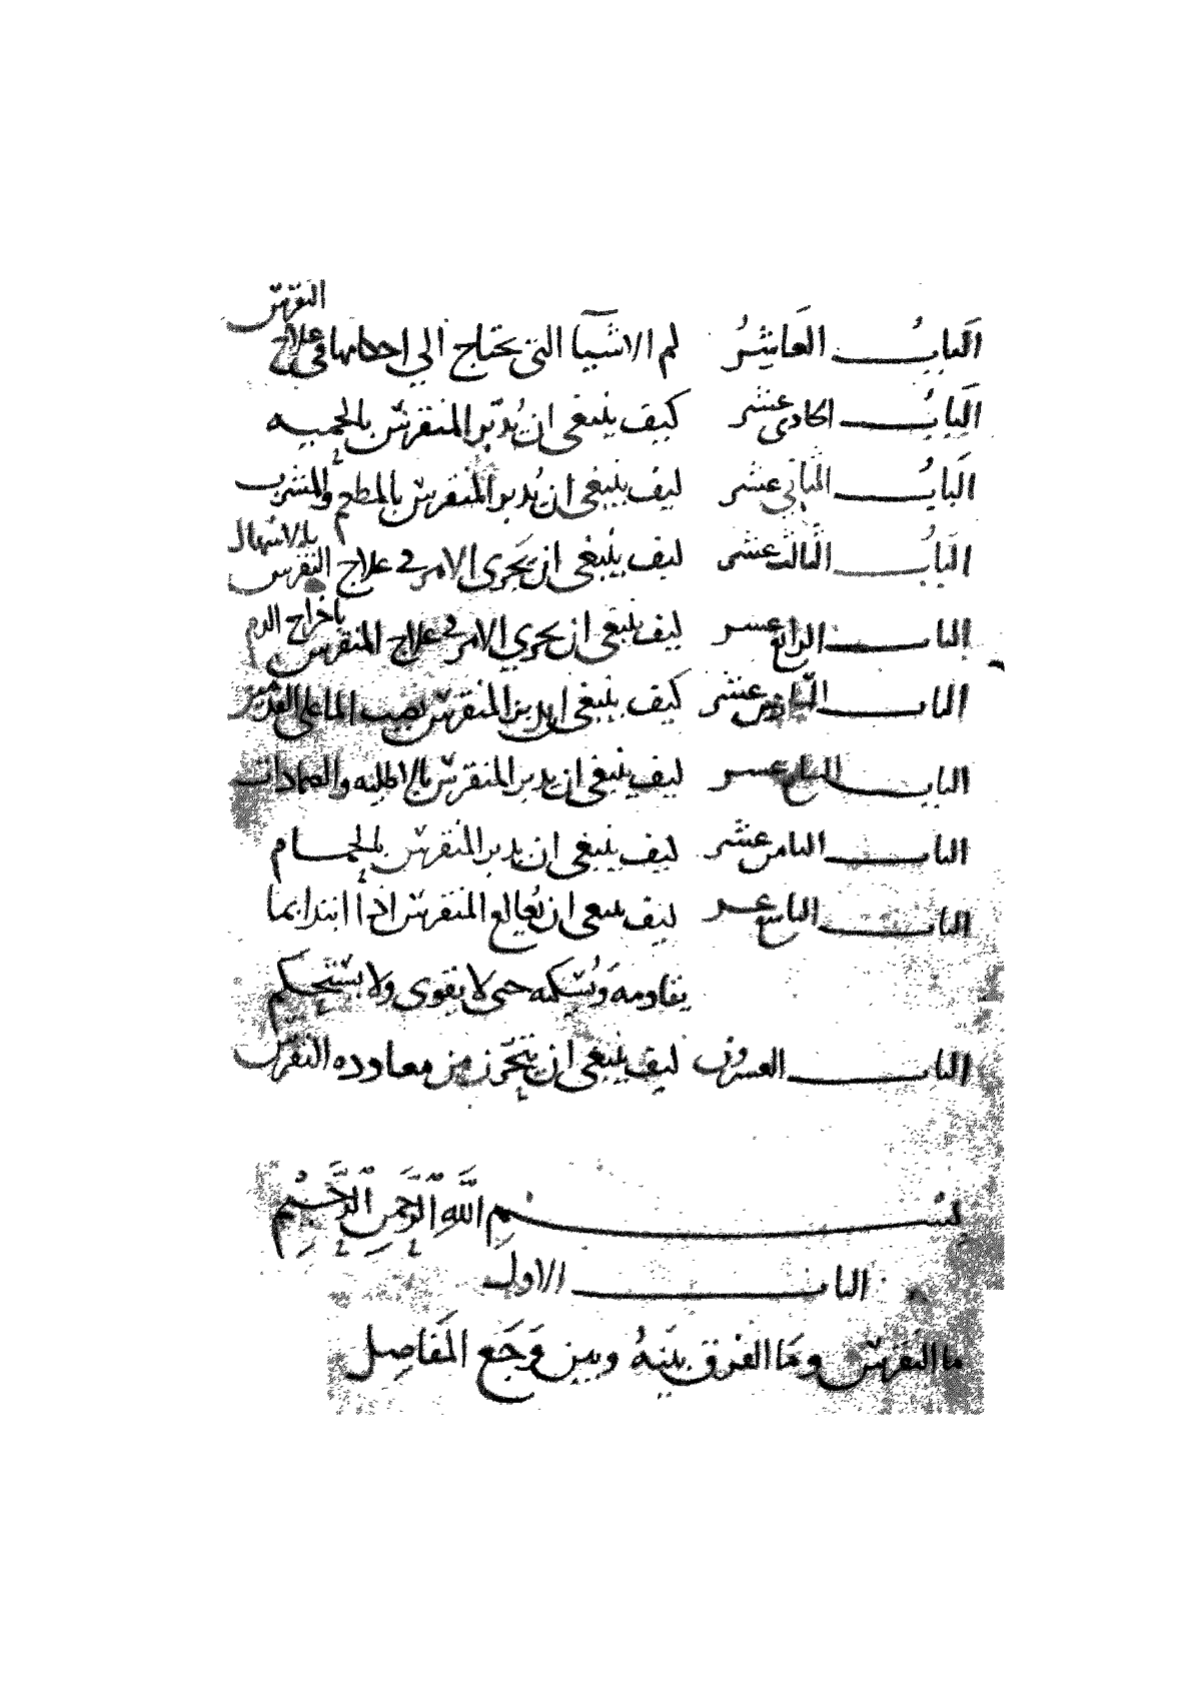 البَابُ العَاشِرُ لم الاشيآ التى يحتاج الي احكامها في علاج النقرس
البَابُ الحادى عشر كيف ينبغى ان يُدبّر المنقرس بالحميه
البَابُ الثاني عشر كيف ينبغى ان يُدبر المنقرس بالمطعم والمشرب
البَابُ الثالث عشر كيف ينبغى ان يَجرى الامر في علاج النقرس بالاسهال
الباب الرابع عشر كيف ينبغى ان يجري الامر في علاج المنقرس باخراج الدم
الباب السادس عشر كيف ينبغى ان يدبر المنقرس بصب الماء على
الباب السابع عشر كيف ينبغى ان يدبر المنقرس بالاطليه والضمادات
الباب الثامن عشر كيف ينبغى ان يدبر المنقرس بالحمام
الباب التاسع عشر كيف ينبغى ان يُعالج المنقرس اذا ابتدا بما
يقاومه وَيُسكنه حتى لا يقوى ولا يستحكم
الباب العشرون كيف ينبغى ان يتحرّز من معاوده النقرس
بسم اللهِ الرَّحمنِ الرَّحِيمِ
الباب الاول
ما النقرس ومَا الفرق بينهُ وبين وَجَع المَفاصِل